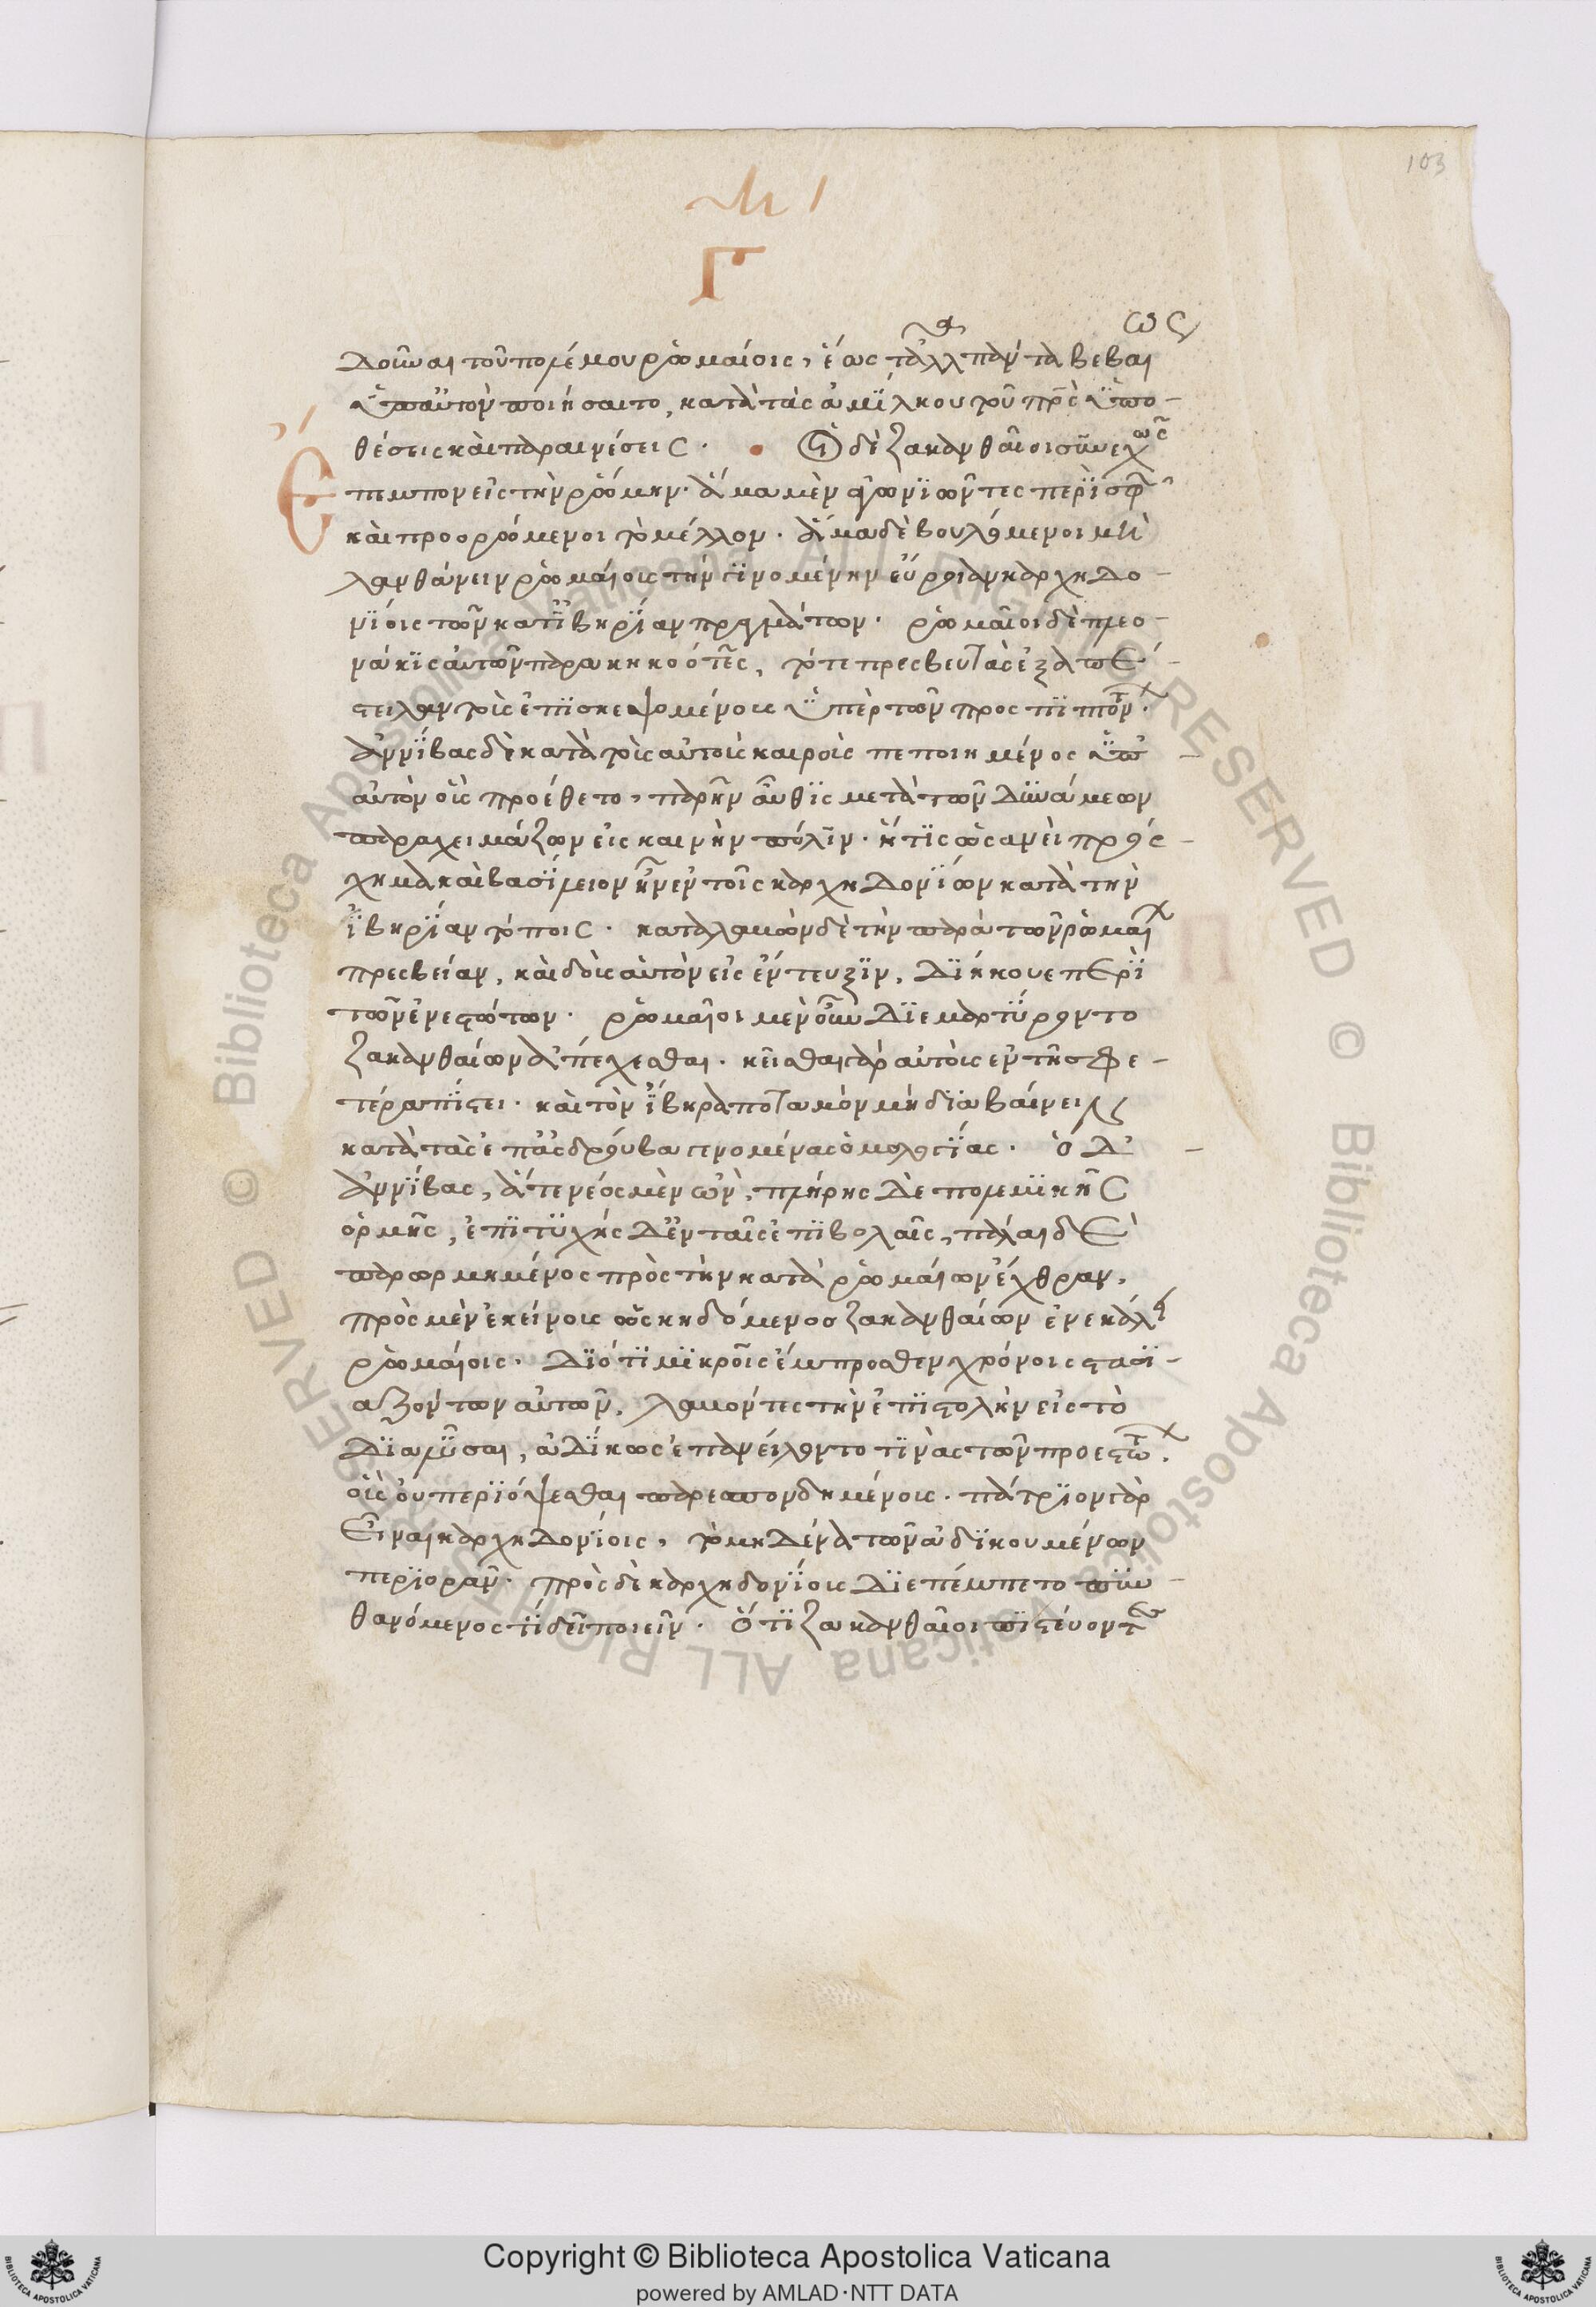 103
Γ
δοῦναι τοῦ πολέμου ῥωμαίοις, ἕως τἄλλα πάντα βεβαίως
ὑπ' αὐτὸν ποιήσαιτο, κατὰ τὰς ἀμίλκου τοῦ πρς ὑπο-
θέσεις καὶ παραινέσεις. Οἱ δὲ ζακανθαῖοι συνεχῶς
ἔπεμπον εἰς τὴν ῥώμην. ἅμα μὲν ἀγωνιῶντες περὶ σφῶν
καὶ προορώμενοι τὸ μέλλον. ἅμα δὲ βουλόμενοι μὴ
λανθάνειν ῥωμαίους τὴν γινομένην εὔροιαν καρχηδο-
νίοις τῶν κατ' ἰβηρίαν πραγμάτων. ῥωμαῖοι δὲ πλεο-
νάκις αὐτῶν παρακηκοότες, τότε πρεσβευτὰς ἐξαπέ-
στειλαν τοὺς ἐπισκεψομένους ὑπὲρ τῶν προσπιπτόντων.
ἀννίβας δὲ κατὰ τοὺς αὐτοὺς καιροὺς πεποιημένος ὑπ'
αὐτὸν οὓς προέθετο, παρῆν αὖθις μετὰ τῶν δυνάμεων
παραχειμάζων εἰς καινὴν πόλιν. ἥτις ὡς ανεὶ πρός-
χημα καὶ βασίλειον ἦν ἐν τοῖς καρχηδονίων κατὰ τὴν
ἰβηρίαν τόποις. καταλαβὼν δὲ τὴν παρὰ τῶν ῥωμαίων
πρεσβείαν, καὶ δοὺς αὑτὸν εἰς ἔντευξιν, διήκουε περὶ
τῶν ἐνεστώτων. ῥωμαῖοι μὲν οὖν διεμαρτύροντο
ζακανθαίων ἀπέχεσθαι. κεῖσθαι γὰρ αὐτοὺς ἐν τῇ σφε-
τέρα πίστει. καὶ τὸν ἴβηρα ποταμὸν μὴ διαβαίνειν
κατὰ τὰς ἐπ' ἀσδρούβα γινομένας ὁμολογίας. ὁ δ'
ἀννίβας, ἅτε νέος μὲν ὢν, πλήρης δὲ πολεμικῆς
ὁρμῆς, ἐπιτυχὴς δ' ἐν ταῖς ἐπιβολαῖς, πάλαι δὲ
παρωρμημένος πρὸς τὴν κατὰ ῥωμαίων ἔχθραν,
πρὸς μὲν ἐκείνους ὡς κηδόμενος ζακανθαίων ἐνεκάλει
ῥωμαίοις. διότι μικροῖς ἔμπροσθεν χρόνοις στασι-
αζόντων αὐτῶν, λαβόντες τὴν ἐπιστολὴν εἰς τὸ
διαλῦσαι, ἀδίκως ἐπανέιλοντο τινὰς τῶν προεστώτων.
οὓς οὐ περιόψεσθαι παρεσπονδημένους. πάτριον γὰρ
εἶναι καρχηδονίοις, τὸ μηδένα τῶν ἀδικουμένων
περιορᾶν. πρὸς δὲ καρχηδονίους διεπέμπετο πυν-
θανόμενος τί δεῖ ποιεῖν. ὅτι ζακανθαῖοι πιστεύοντες
Copyright © Biblioteca Apostolica Vaticana
powered by AMLAD·NTT DATA